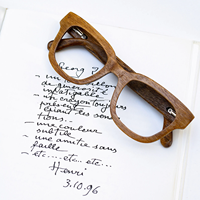 Georg
- un
de générosité
infatigable
- un crayon toujours
présent
liant les son
tions..
- une couleur
subtile
- une amitié sans
faille
- etc.... etc... etc...
Henri
3.10.96